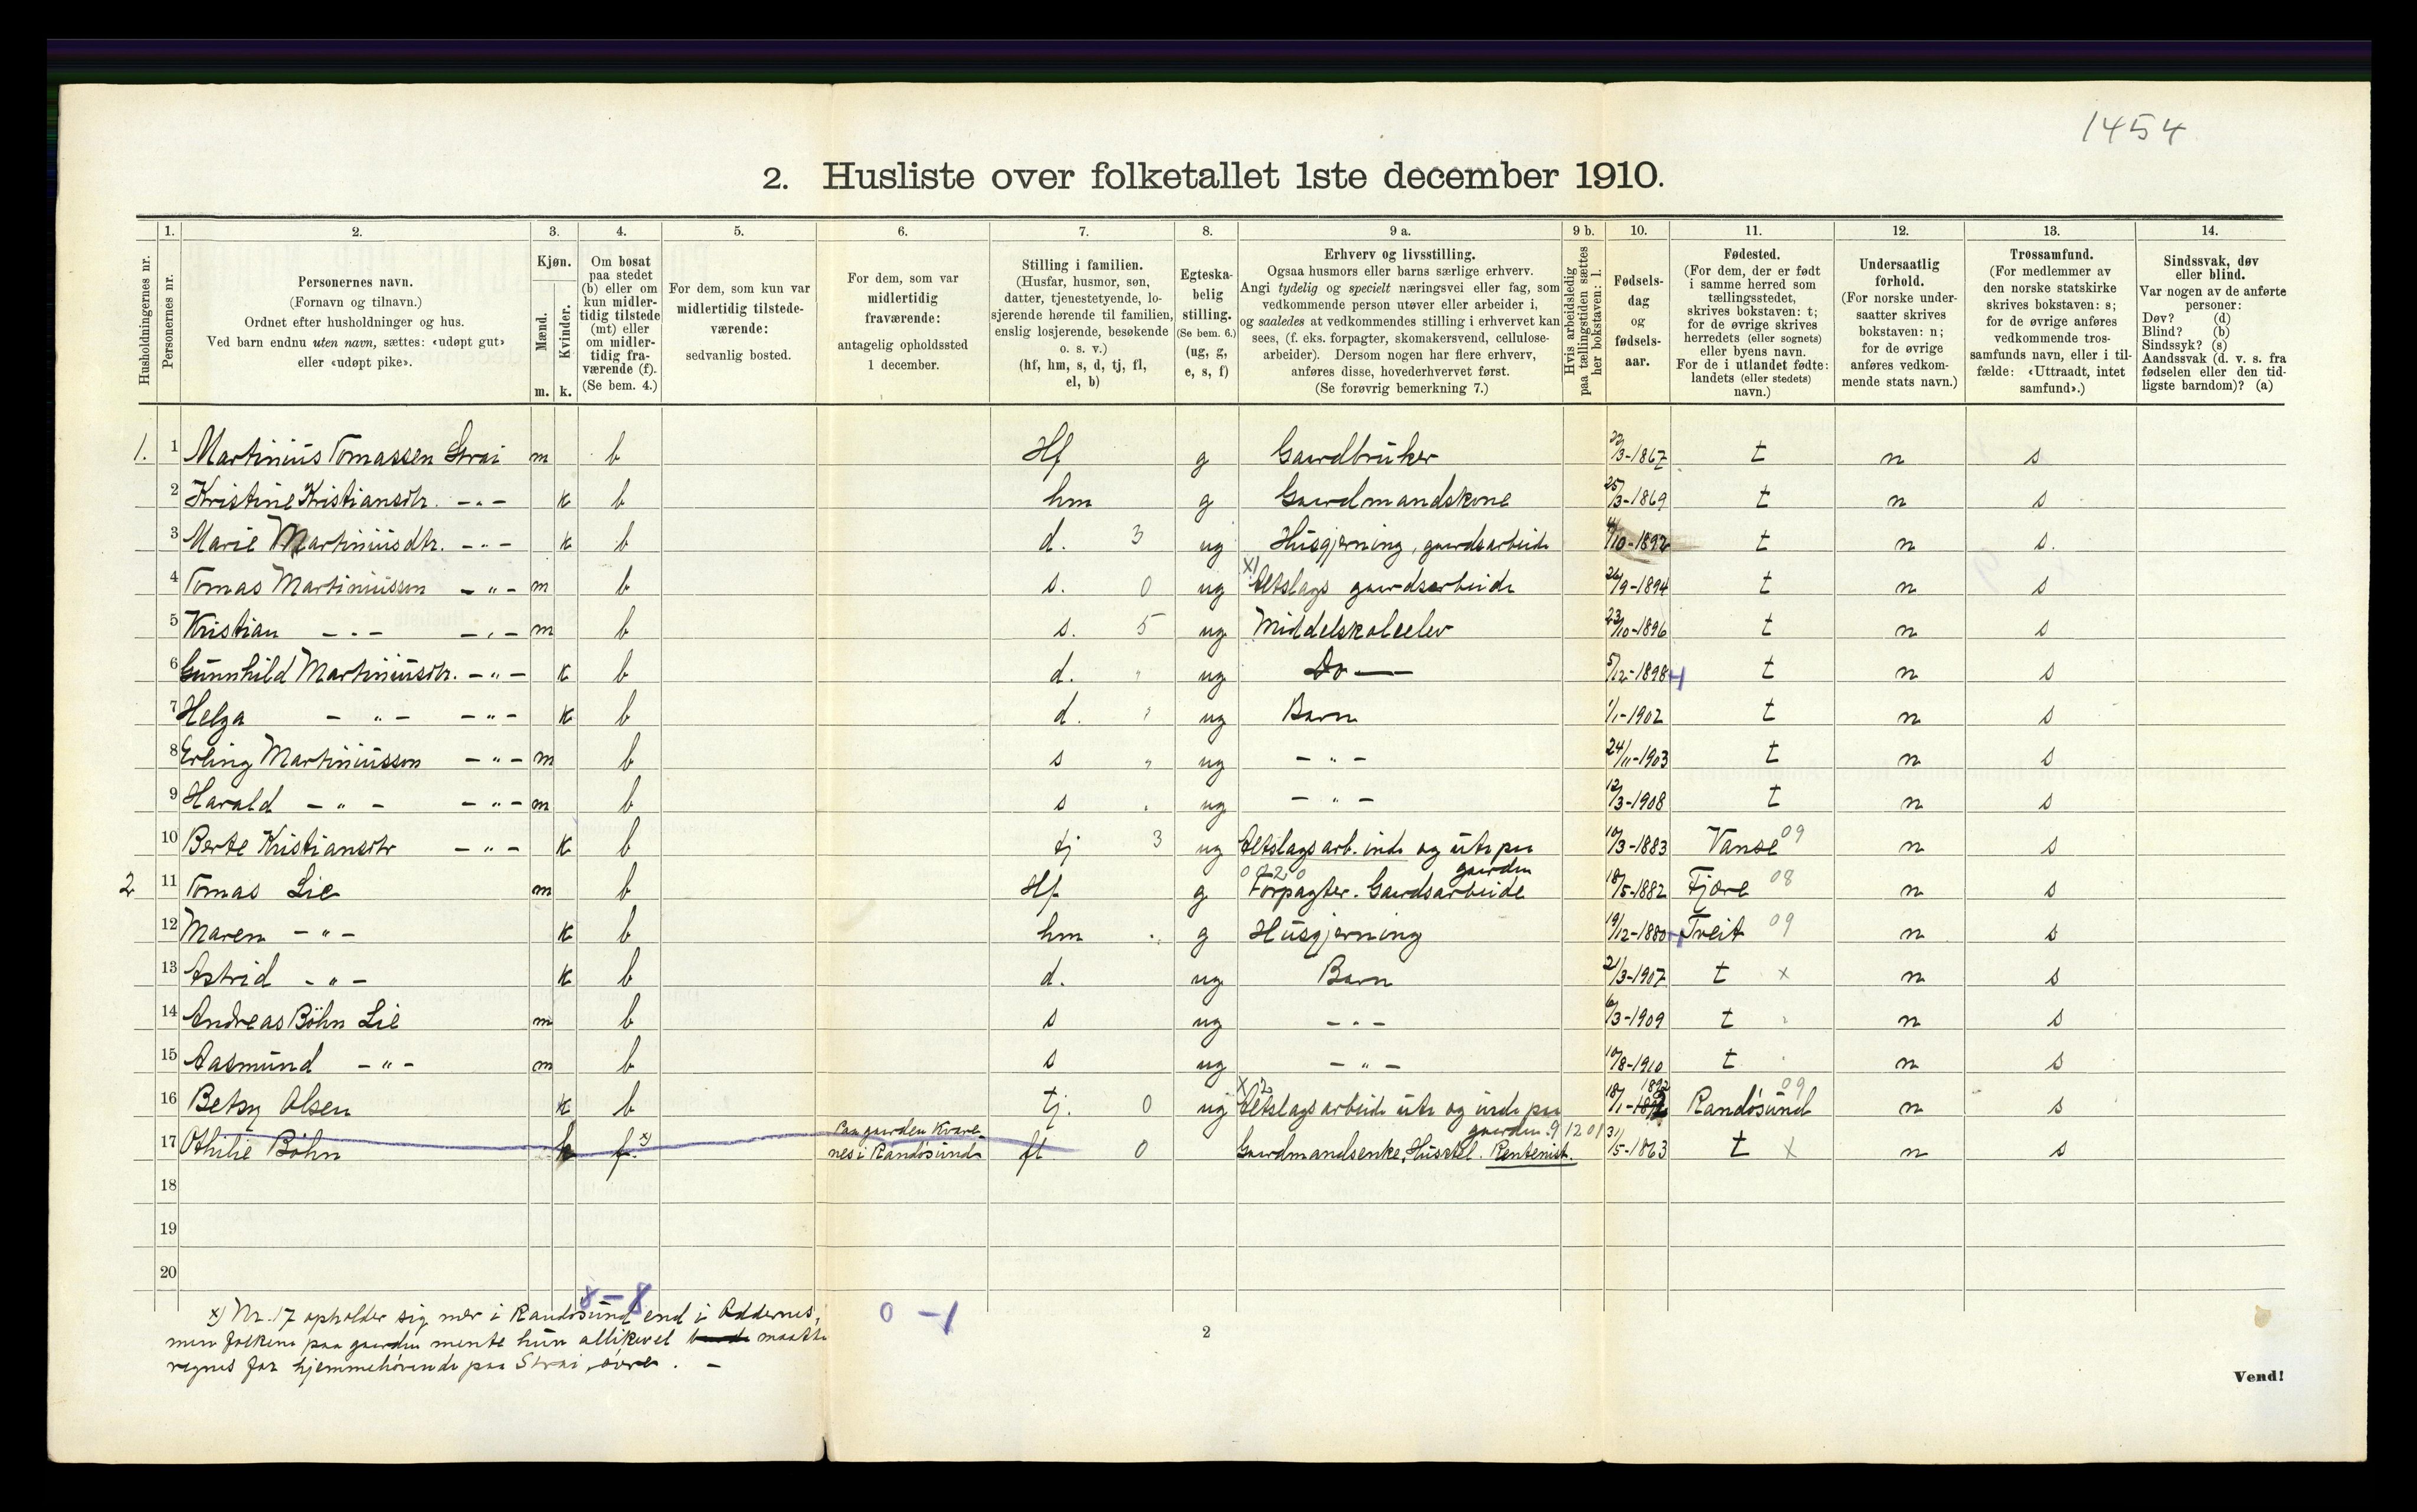 1454
2. Husliste over folketallet 1ste december 1910.
Husholdningernes nr.
1. Personernes nr.
2. Personernes navn. (Fornavn og tilnavn.) Ordnet efter husholdninger og hus. Ved barn endnu uten navn, sættes: «udøpt gut» eller «udøpt pike».
3. Kjøn. Mænd. m. Kvinder. k.
4. Om bosat paa stedet (b) eller om kun midlertidig tilstede (mt) eller om midlertidig fraværende (f). (Se bem. 4.)
5. For dem, som kun var midlertidig tilstedeværende: sedvanlig bosted.
6. For dem, som var midlertidig fraværende: antagelig opholdssted 1 december.
7. Stilling i familien. (Husfar, husmor, søn, datter, tjenestetyende, losjerende hørende til familien, enslig losjerende, besøkende o. s. v.) (hf, hm, s, d, tj, fl, el, b)
8. Egteskabelig stilling. (Se bem. 6.) (ug, g, e, s, f)
9 a. Erhverv og livsstilling. Ogsaa husmors eller barns særlige erhverv. Angi tydelig og specielt næringsvei eller fag, som vedkommende person utøver eller arbeider i, og saaledes at vedkommendes stilling i erhvervet kan sees, (f. eks. forpagter, skomakersvend, cellulosearbeider). Dersom nogen har flere erhverv, anføres disse, hovederhvervet først. (Se forøvrig bemerkning 7.)
9 b. Hvis arbeidsledig paa tællingstiden sættes her bokstaven: l.
10. Fødselsdag og fødselsaar.
11. Fødested. (For dem, der er født i samme herred som tællingsstedet, skrives bokstaven: t; for de øvrige skrives herredets (eller sognets) eller byens navn. For de i utlandet fødte: landets (eller stedets) navn.)
12. Undersaatlig forhold. (For norske undersaatter skrives bokstaven: n; for de øvrige anføres vedkommende stats navn.)
13. Trossamfund. (For medlemmer av den norske statskirke skrives bokstaven: s; for de øvrige anføres vedkommende trossamfunds navn, eller i tilfælde: «Uttraadt, intet samfund».)
14. Sindssvak, døv eller blind. Var nogen av de anførte personer: Døv? (d) Blind? (b) Sindssyk? (s) Aandssvak (d. v. s. fra fødselen eller den tidligste barndom)? (a)
1. 1 Martinius Tomassen Strai m b Hf g Gaardbruker 22/3-1867 t n s
2 Kristine Kristiansdtr. -"- k b hm g Gaardmandskone 25/3-1869 t n s
3 Marie Martiniusdtr. -"- k b d. 3 ug Husgjerning, gaardsarbeide 4/10-1892 t n s.
4 Tomas Martiniussen -"- m b s. 0 ug x) Altslags gaardsarbeide 26/9-1894 t n s
5 Kristian -"- -"- m b s. 5 ug Middelskoleelev 23/10-1896 t n s
6 Gunnhild Martiniusdtr. -"- k b d. " ug Do — 5/12-1898 t n s
7 Helga -"- -"- k b d. " ug Barn 1/1-1902 t n s
8 Erling Martiniussen -"- m b s " ug -"- 24/11-1903 t n s
9 Harald -"- -"- m b s " ug -"- 12/3-1908 t n s
10 Berte Kristiansdtr -"- k b tj 3 ug Altslags arb. inde og ute paa gaarden 10/3-1883 Vanse 09 n s
2 11 Tomas Lie m b Hf g Forpagter. Gaardsarbeide 18/5-1882 Fjære 08 n s
12 Maren -"- k b hm g Husgjerning 19/12-1880 Tveit 09 n s
13 Astrid -"- k b d. ug Barn 21/3-1907 t x n s
14 Andreas Böhn Lie m b s ug -"- 6/3-1909 t n s
15 Aasmund -"- m b s ug -"- 10/8-1910 t n s
16 Betsy Olsen k b tj. 0 ug Altslags arbeide ute og inde paa gaarden. 18/1-1892 Randösund 09 n s
17 Othilie Böhn k f. x) Paa gaarden Kvarenes i Randösund fl 0 Gaardmandsenke, Husstel. Rentenist. 31/5-1863 t x n s
18
19
20
8-8
0 -1
x) Nr. 17 opholder sig mer i Randösund end i Oddernes,
men folkene paa gaarden mente hun allikevel maatte
regnes for hjemmehörende paa Strai, övre. -
2
Vend!